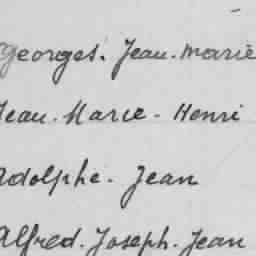 Georges. Jean. Marie
Jean. Marie - Henri
Adolphe. Jean
Alfred. Joseph. Jean